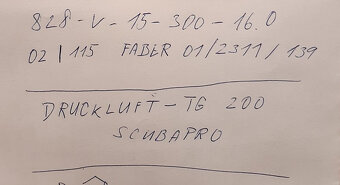 828-V-15-300-16.0
02 | 115 FABER 01/2311/139
DRUCKLUFT-TG 200
SCUBAPRO